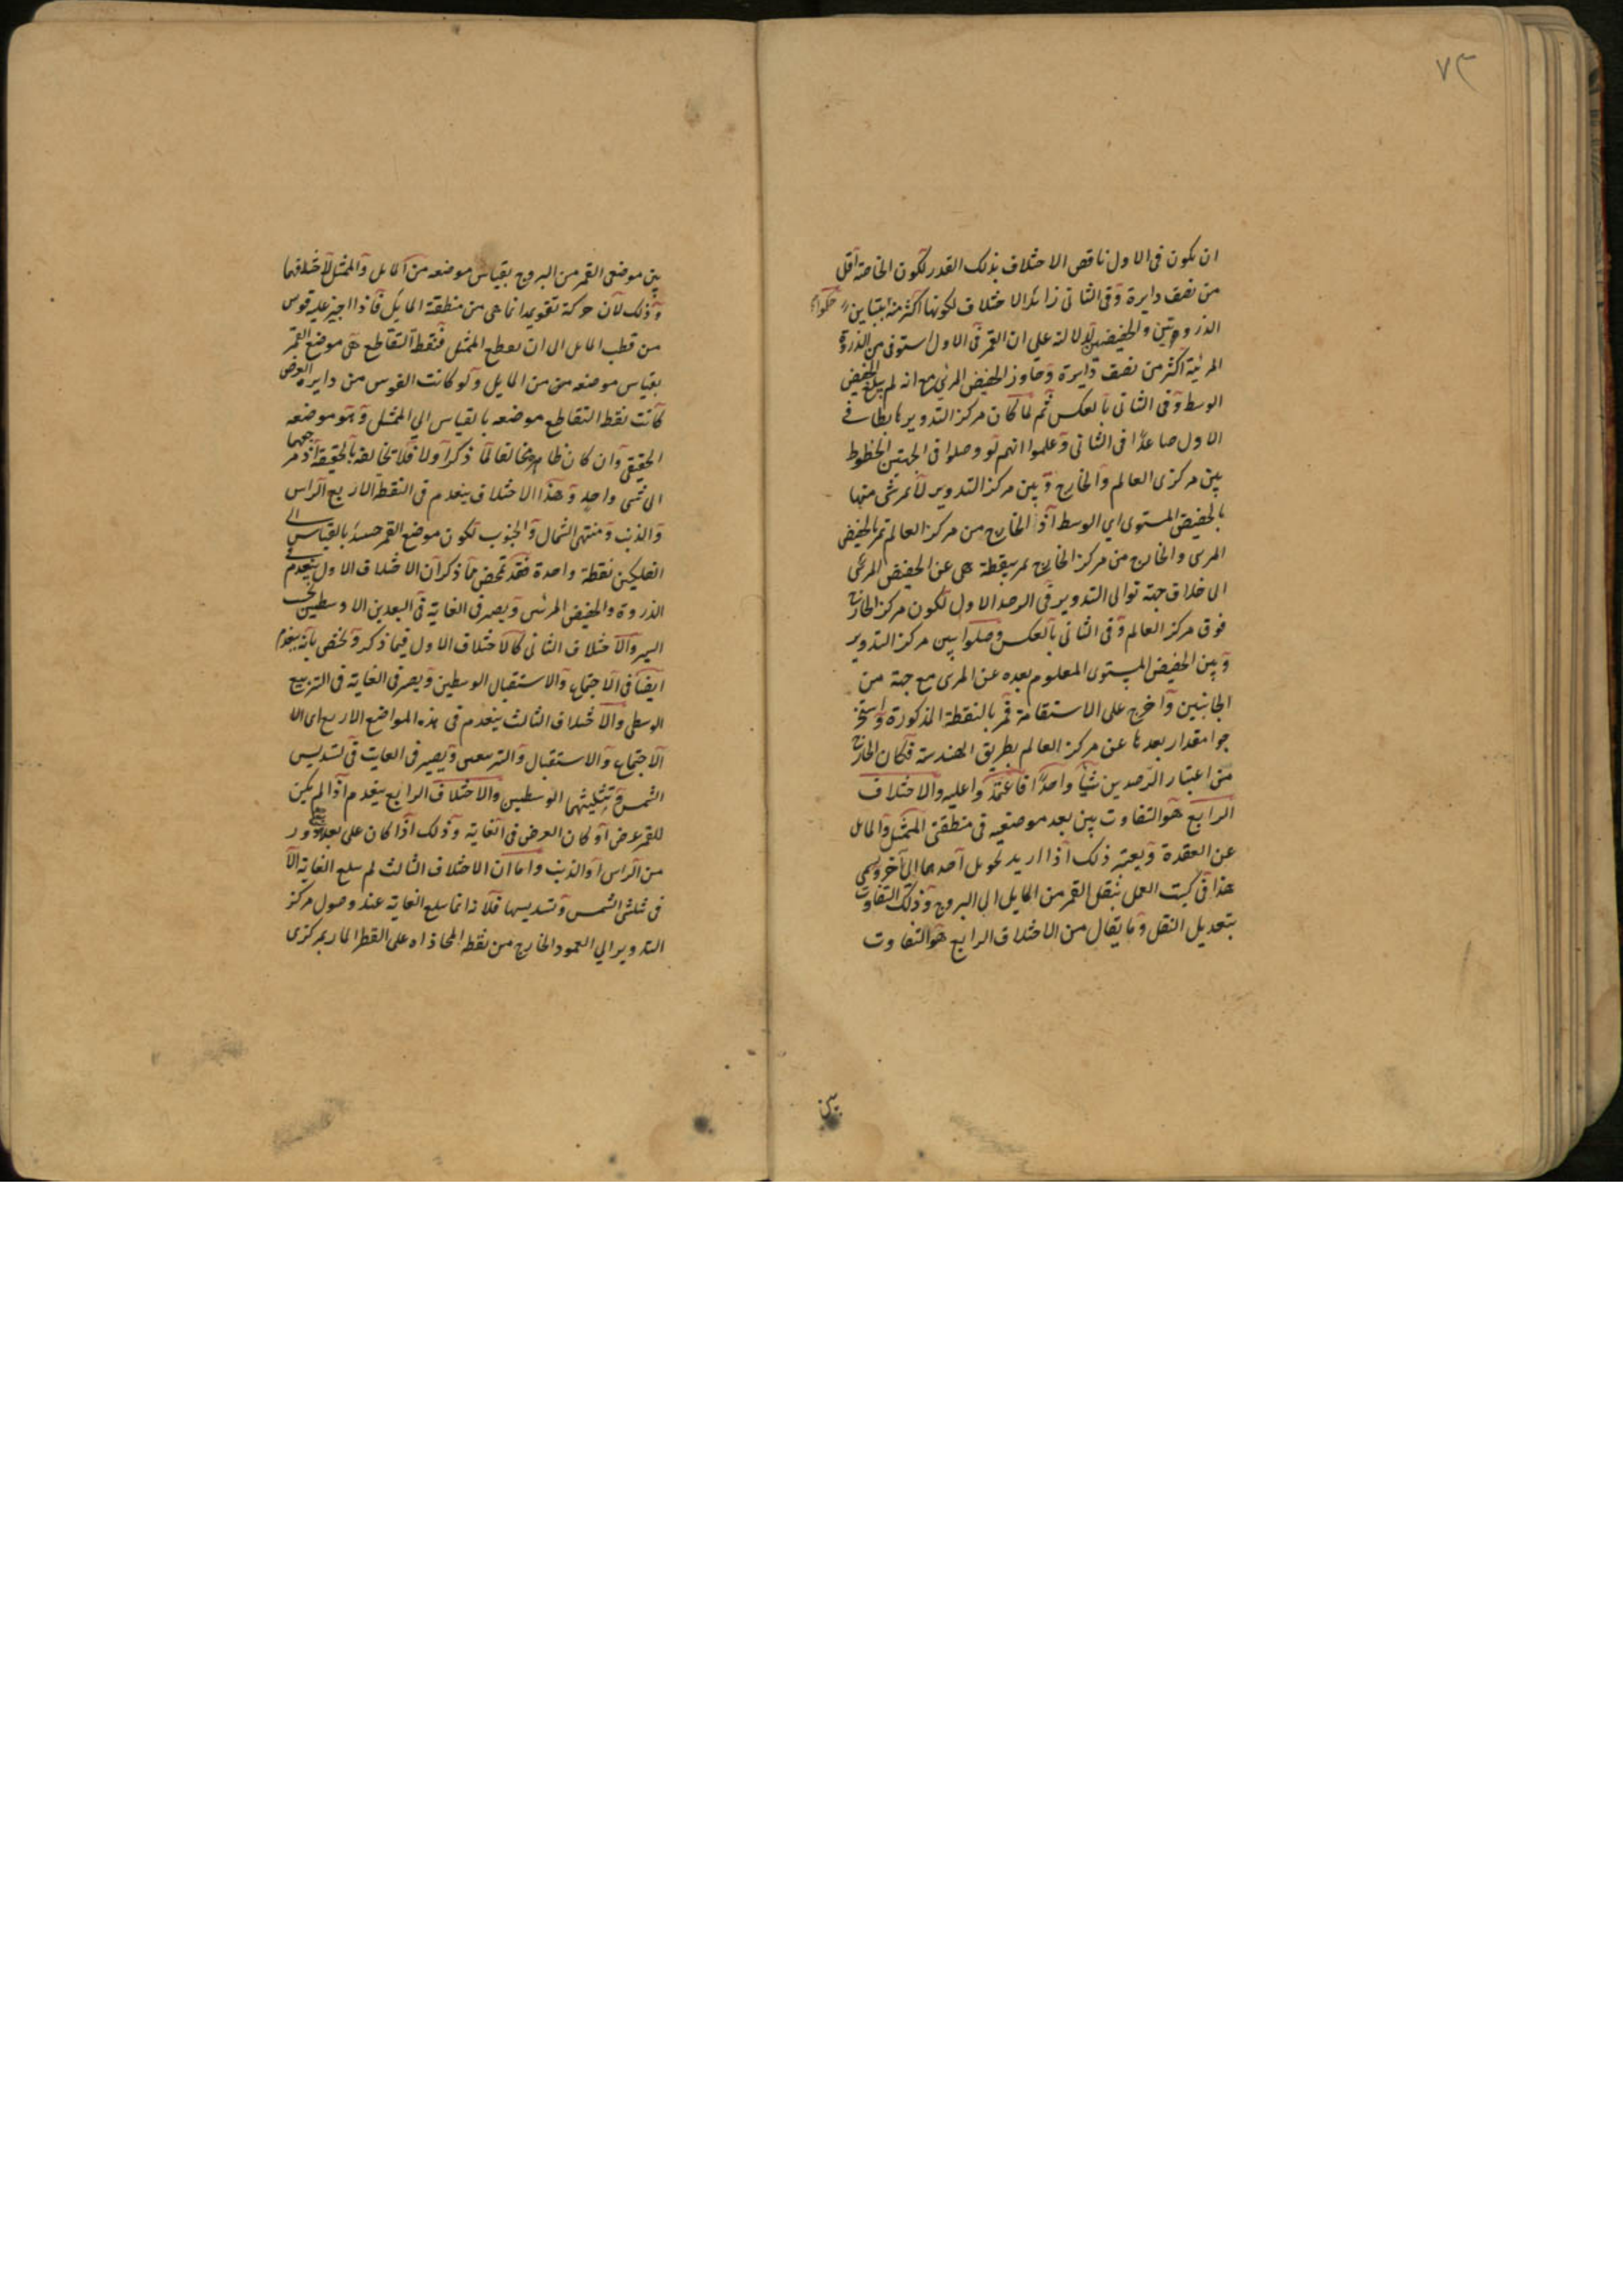 ٧٣
ان يكون فى الاول ناقص الاختلاف بذلك القدر لكون الخاصة اقل
من نصف دايرة وفى الثانى زائد الاختلاف لكونها اكثر منه بتباين حكموا
الذروتين والحضيضين لدلالته على ان القمر فى الاول استوفى من الذروة
المرئية اكثر من نصف دايرة وجاوز الحضيض المرئى مع انه لم يبلغ الحضيض
الوسط وفى الثانى بالعكس ثم لما كان مركز التدوير هابطا فى
الاول صاعدا فى الثانى وعلموا انهم لو وصلوا فى الجهتين الخطوط
بين مركزى العالم والخارج وبين مركز التدوير لا يمر شئ منها
بالحضيض المستوى اى الوسط اذ الخارج من مركز العالم يمر بالحضيض
المرئى والخارج من مركز الخارج يمر بنقطة هى عن الحضيض المرئى
الى خلاف جهة توالى التدوير فى الرصد الاول لكون مركز الخارج
فوق مركز العالم وفى الثانى بالعكس وصلوا بين مركز التدوير
وبين الحضيض المستوى المعلوم بعده عن المرئى مع جهة من
الجانبين واخرج على الاستقامة فمر بالنقطة المذكورة واستخر
جوا مقدار بعدها عن مركز العالم بطريق الهندسة فكان الخارج
من اعتبار الرصدين شيأ واحدا فاعتمدوا عليه والاختلاف
الرابع هو التفاوت بين بعد موضعيه فى منطقتى الممثل والمايل
عن العقدة ويعتبر ذلك اذا اريد تحويل احدهما الى الآخر ويسمى
هذا فى كتب العمل بنقل القمر من المايل الى البروج وذلك التفاوت
بتعديل النقل وما يقال من الاختلاف الرابع هو التفاوت
بين
بين موضعى القمر من البروج بقياس موضعه من المايل والممثل لاختلافهما
وذلك لان حركة تقويمه انما هى من منطقة المايل فاذا اجيز عليه قوس
من قطب المايل الى ان يقطع الممثل فنقطة التقاطع هى موضع القمر
بقياس موضعه من المايل ولو كانت القوس من دايرة العرض
كانت نقطة التقاطع موضعه بالقياس الى الممثل وهو موضعه
الحقيقى وان كان ظاهره مخالفا لما ذكر اولا فلا تخالف بالحقيقة اذ مرجعهما
الى شئ واحد وهذا الاختلاف ينعدم فى النقط الاربع الراس
والذنب ومنتهى الشمال والجنوب لكون موضع القمر حينئذ بالقياس الى
الفلكين نقطة واحدة فقد تمحض مما ذكر ان الاختلاف الاول ينعدم فى
الذروة والحضيض المرئيين ويصير فى الغاية فى البعدين الاوسطين بحسب
السير والاختلاف الثانى كالاختلاف الاول فيما ذكر ويختص بانه ينعدم
ايضا فى الاجتماع والاستقبال الوسطين ويصير فى الغاية فى التربيع
الوسطى والاختلاف الثالث ينعدم فى هذه المواضع الاربع اى الا
الاجتماع والاستقبال والتربيعين ويصير فى الغاية فى تسديس
الشمس وتثليثها الوسطين والاختلاف الرابع ينعدم اذا لم يكن
للقمر عرض او كان العرض فى الغاية وذلك اذا كان على بعد ربع دور
من الراس او الذنب واما ان الاختلاف الثالث لم يبلغ الغاية الا
فى تثليثى الشمس وتسديسها فلانه انما يبلغ الغاية عند وصول مركز
التدوير الى العمود الخارج من نقطة المحاذاة على القطر المار بمركزى